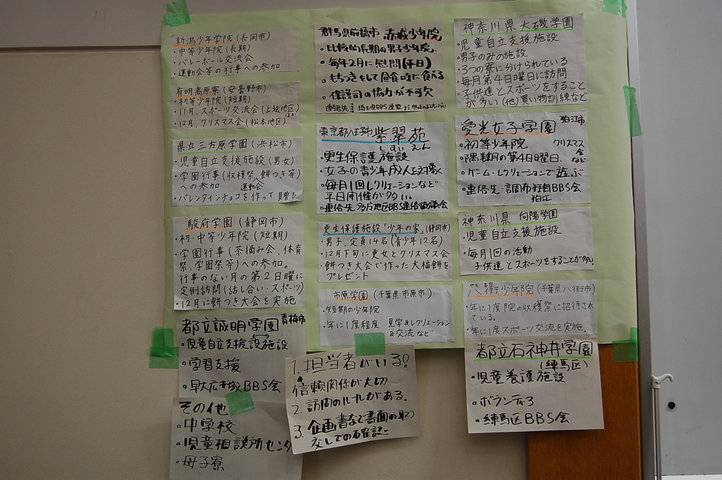 新潟少年学院(長岡市)
・中等少年院(長期)
・バレーボール交流会
・運動会等の行事への参加
有明高原寮(安曇野市)
・初等少年院(短期)
・11月、スポーツ交流会(上越地区)
・12月、クリスマス会(松本地区)
県立三方原学園(浜松市)
・児童自立支援施設(男女)
・学園行事(収穫祭、餅つき等)
への参加 運動会
・バレンタインチョコを作って贈る
駿府学園(静岡市)
・初・中等少年院(短期)
・学園行事(茶摘み会、体育
祭、学園祭等)への参加。
行事のない月の第2日曜に
定例訪問(話し合い・スポーツ)
・12月に餅つき大会を実施
都立誠明学園 青梅市
・児童自立支援施設
・学習支援
・早大広末BBS会
その他
・中学校
・児童相談所センター
・母子寮
群馬県前橋市 赤城少年院
・比較的長期の男子少年院。
・毎年2月に慰問(平日)
・もちつきをして昼食時に食べる
・保護司の協力が不可欠
東京都八王子 紫翠苑
しすいえん
・更生保護施設
・女子の青少年、成人女子対象
・毎月1回レクリエーションなど
平日開催が多い
・連絡先 多摩地区BBS連絡協議会
更生保護施設「少年の家」(静岡市)
・男子、定員14名(青少年12名)
・12月下旬に更女とクリスマス会
・餅つき大会で作った大福餅を
プレゼント
市原学園(千葉県市原市)
・短期の少年院
・年に1度程度 見学&レクリエーション
&交流など
1. 担当者がいる。
信頼関係が大切
2. 訪問のルールがある。
3. 企画書など書面の取り
交しでの確認に
神奈川県 大磯学園
・児童自立支援施設
・男子のみの施設
・3つの寮に分けられている
・毎月第4日曜日に訪問
・子供達とスポーツをすること
が多い(他)買い物訓練など
愛光女子学園 狛江市
・初等少年院 クリスマス会など
・隔月の第4日曜日、
・ゲーム・レクリエーションで遊ぶ
・連絡先:調布狛江BBS会
神奈川県 向陽学園
・児童自立支援施設
・毎月1回の活動
子供達とスポーツをすることが多い。
八街少年院(千葉県八街市)
・年に1度院の収穫祭に招待され
ている。
・年に1度スポーツ交流を実施。
都立石神井学園
(練馬区)
・児童養護施設
・ボランティア
・練馬区BBS会